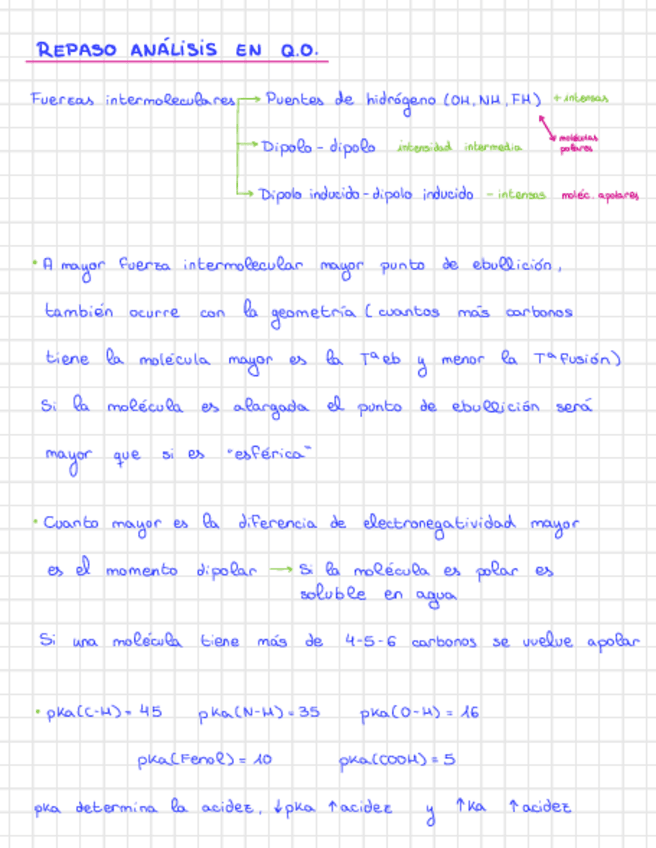 REPASO ANÁLISIS EN Q.O.
Fuerzas intermoleculares → Puentes de hidrógeno (OH, NH, FH) + intensas
moléculas polares
→ Dipolo - dipolo intensidad intermedia
→ Dipolo inducido - dipolo inducido - intensas moléc. apolares
· A mayor fuerza intermolecular mayor punto de ebullición,
también ocurre con la geometría (cuantos más carbonos
tiene la molécula mayor es la Tª eb y menor la Tª fusión)
Si la molécula es alargada el punto de ebullición será
mayor que si es "esférica"
· Cuanto mayor es la diferencia de electronegatividad mayor
es el momento dipolar → Si la molécula es polar es
soluble en agua
Si una molécula tiene más de 4-5-6 carbonos se vuelve apolar
· pKa(C-H) = 45 pKa(N-H) = 35 pKa(O-H) = 16
pKa(Fenol) = 10 pKa(COOH) = 5
pKa determina la acidez, ↓pKa ↑acidez y ↑Ka ↑acidez